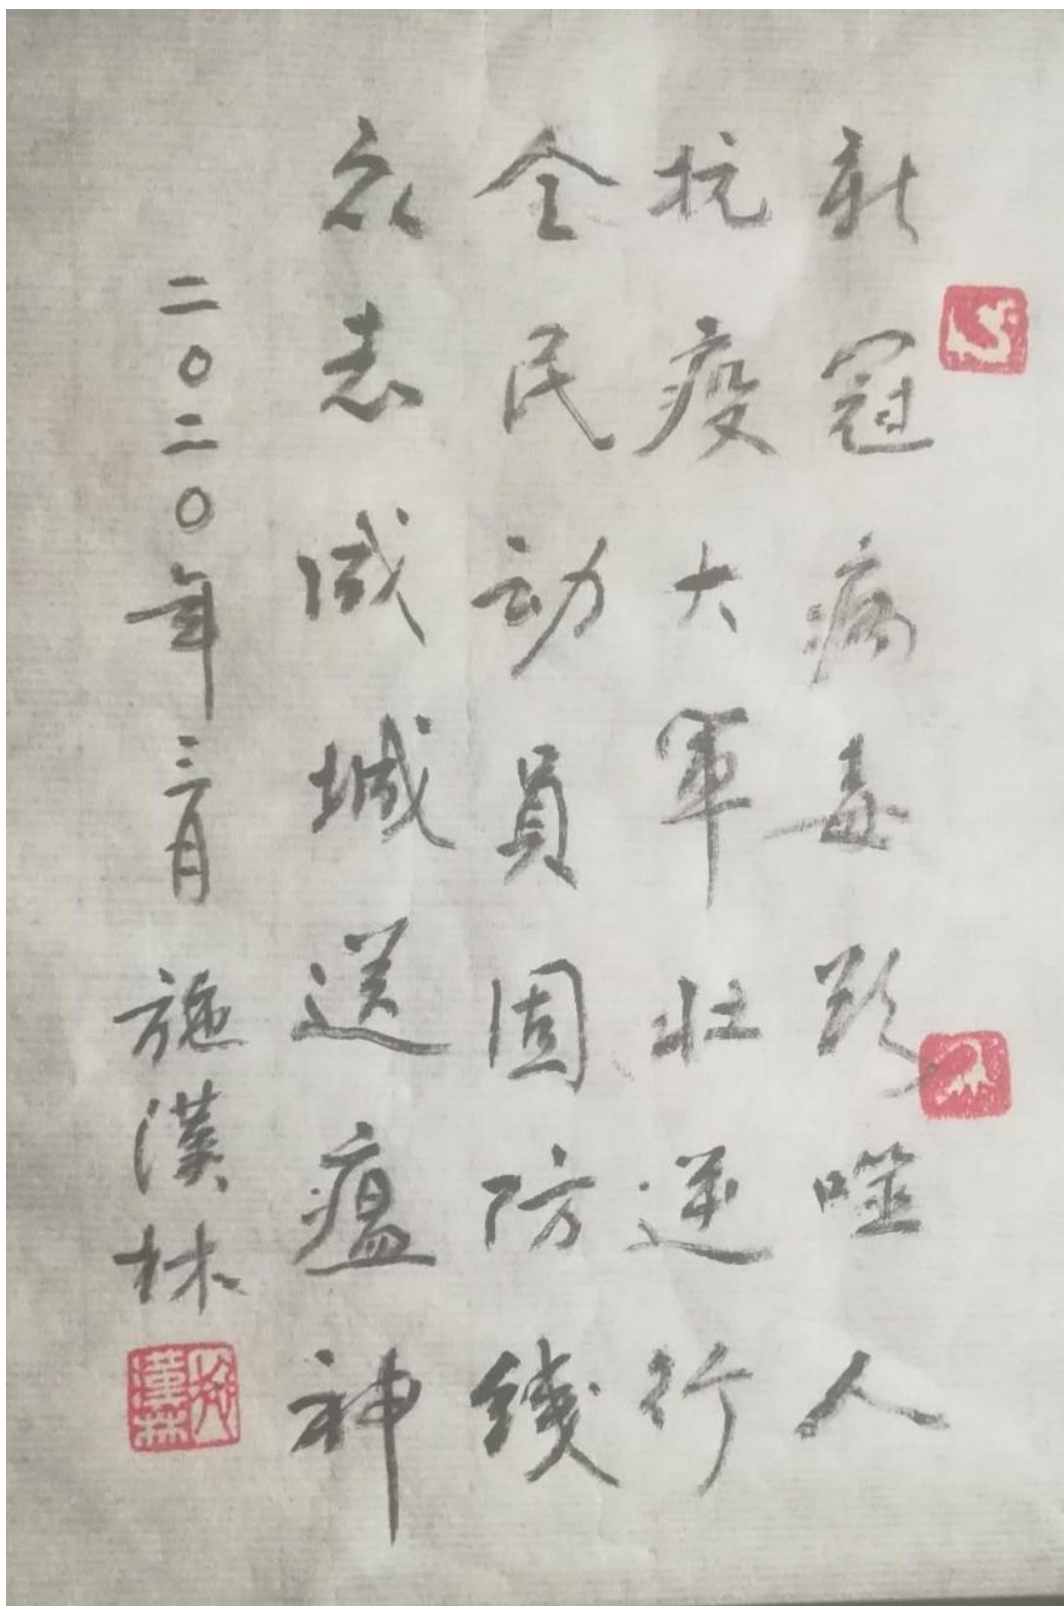 新冠病毒欲噬人
抗疫大军壮逆行
全民动員固防线
众志成城送瘟神
二〇二〇年三月 施漢林
漢林